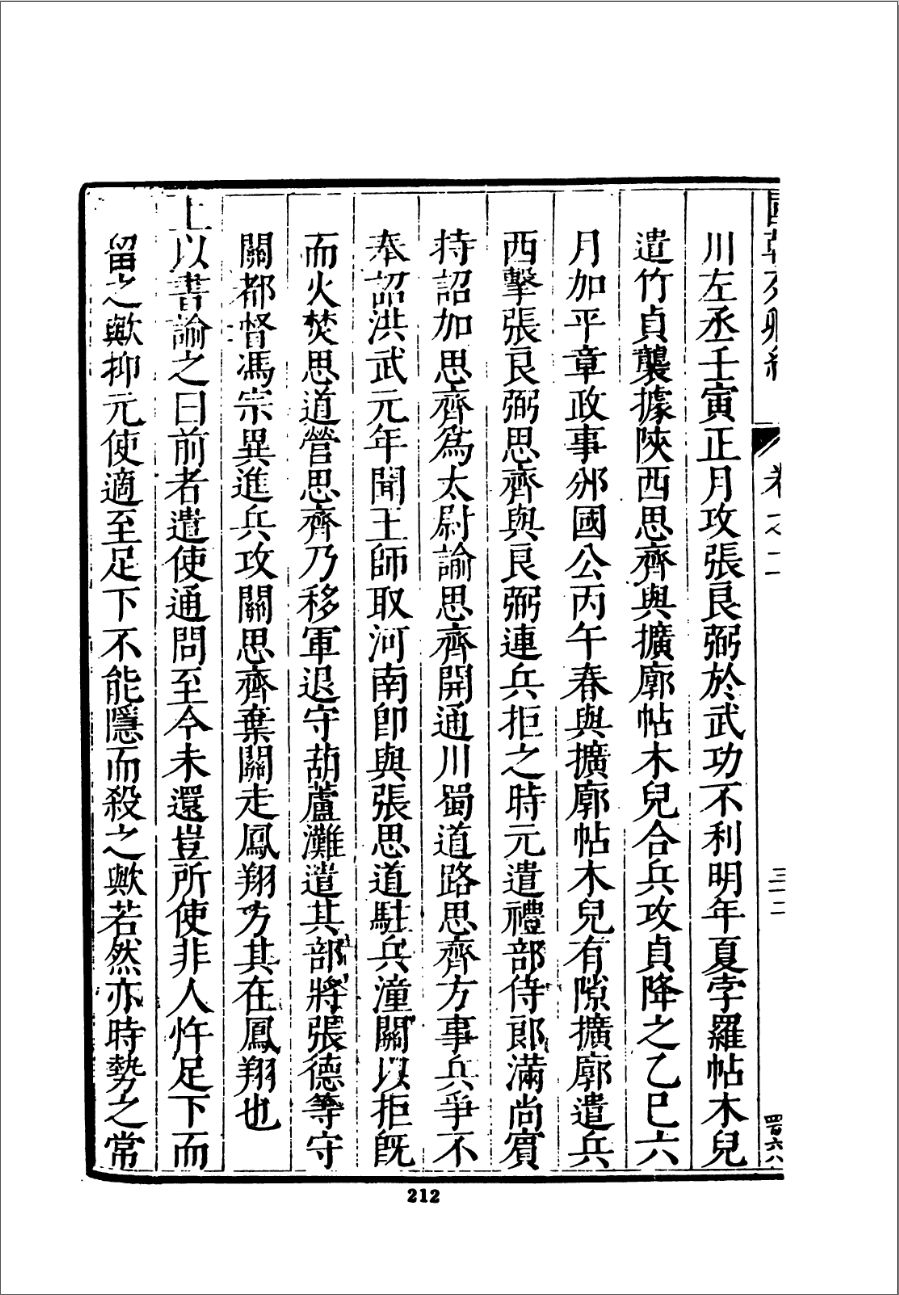 國朝列卿紀 卷之二 三十二 四百六八
川左丞壬寅正月攻張良弼於武功不利明年夏孛羅帖木兒
遣竹貞襲據陝西思齊與擴廓帖木兒合兵攻貞降之乙巳六
月加平章政事邠國公丙午春與擴廓帖木兒有隙擴廓遣兵
西擊張良弼思齊與良弼連兵拒之時元遣禮部侍郎滿尚賔
持詔加思齊爲太尉諭思齊開通川蜀道路思齊方事兵爭不
奉詔洪武元年聞王師取河南卽與張思道駐兵潼關以拒旣
而火焚思道營思齊乃移軍退守葫蘆灘遣其部將張德等守
關都督馮宗異進兵攻關思齊棄關走鳳翔方其在鳳翔也
上以書諭之曰前者遣使通問至今未還豈所使非人忤足下而
留之歟抑元使適至足下不能隱而殺之歟若然亦時勢之常
212